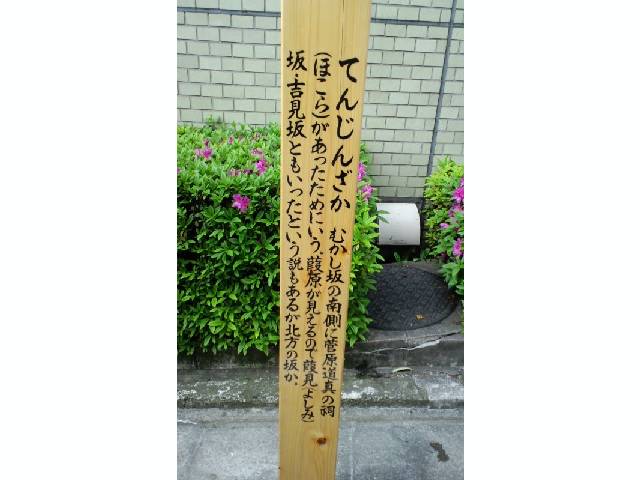 てんじんざか むかし坂の南側に菅原道真の祠
(ほこら)があったためにいう。葭原が見えるので葭見(よしみ)
坂・吉見坂ともいったという説もあるが北方の坂か。